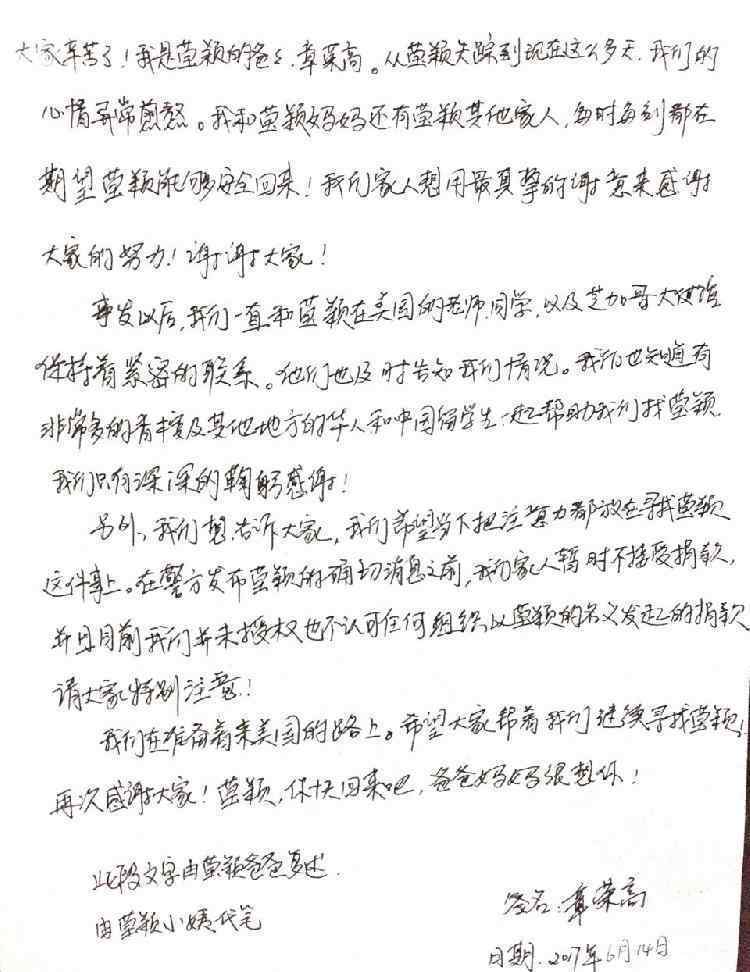 大家辛苦了！我是莹颖的爸爸，章荣高。从莹颖失踪到现在这么多天，我们的
心情异常煎熬。我和莹颖妈妈还有莹颖其他家人，每时每刻都在
期望莹颖能够安全回来！我们家人想用最真挚的谢意来感谢
大家的努力！谢谢大家！
事发以后，我们一直和莹颖在美国的老师、同学，以及芝加哥大使馆
保持着紧密的联系。他们也及时告知我们情况。我们也知道有
非常多的香槟及其他地方的华人和中国留学生一起帮助我们找莹颖，
我们只有深深的鞠躬感谢！
另外，我们想告诉大家，我们希望当下把注意力都放在寻找莹颖
这件事上。在警方发布莹颖的确切消息之前，我们家人暂时不接受捐款，
并且目前我们并未授权也不认可任何组织以莹颖的名义发起的捐款
请大家特别注意！
我们在准备着来美国的路上。希望大家帮着我们继续寻找莹颖！
再次感谢大家！莹颖，你快回来吧，爸爸妈妈很想你！
此段文字由莹颖爸爸口述．
由莹颖小姨代笔
签名：章荣高
日期．2017年6月14日